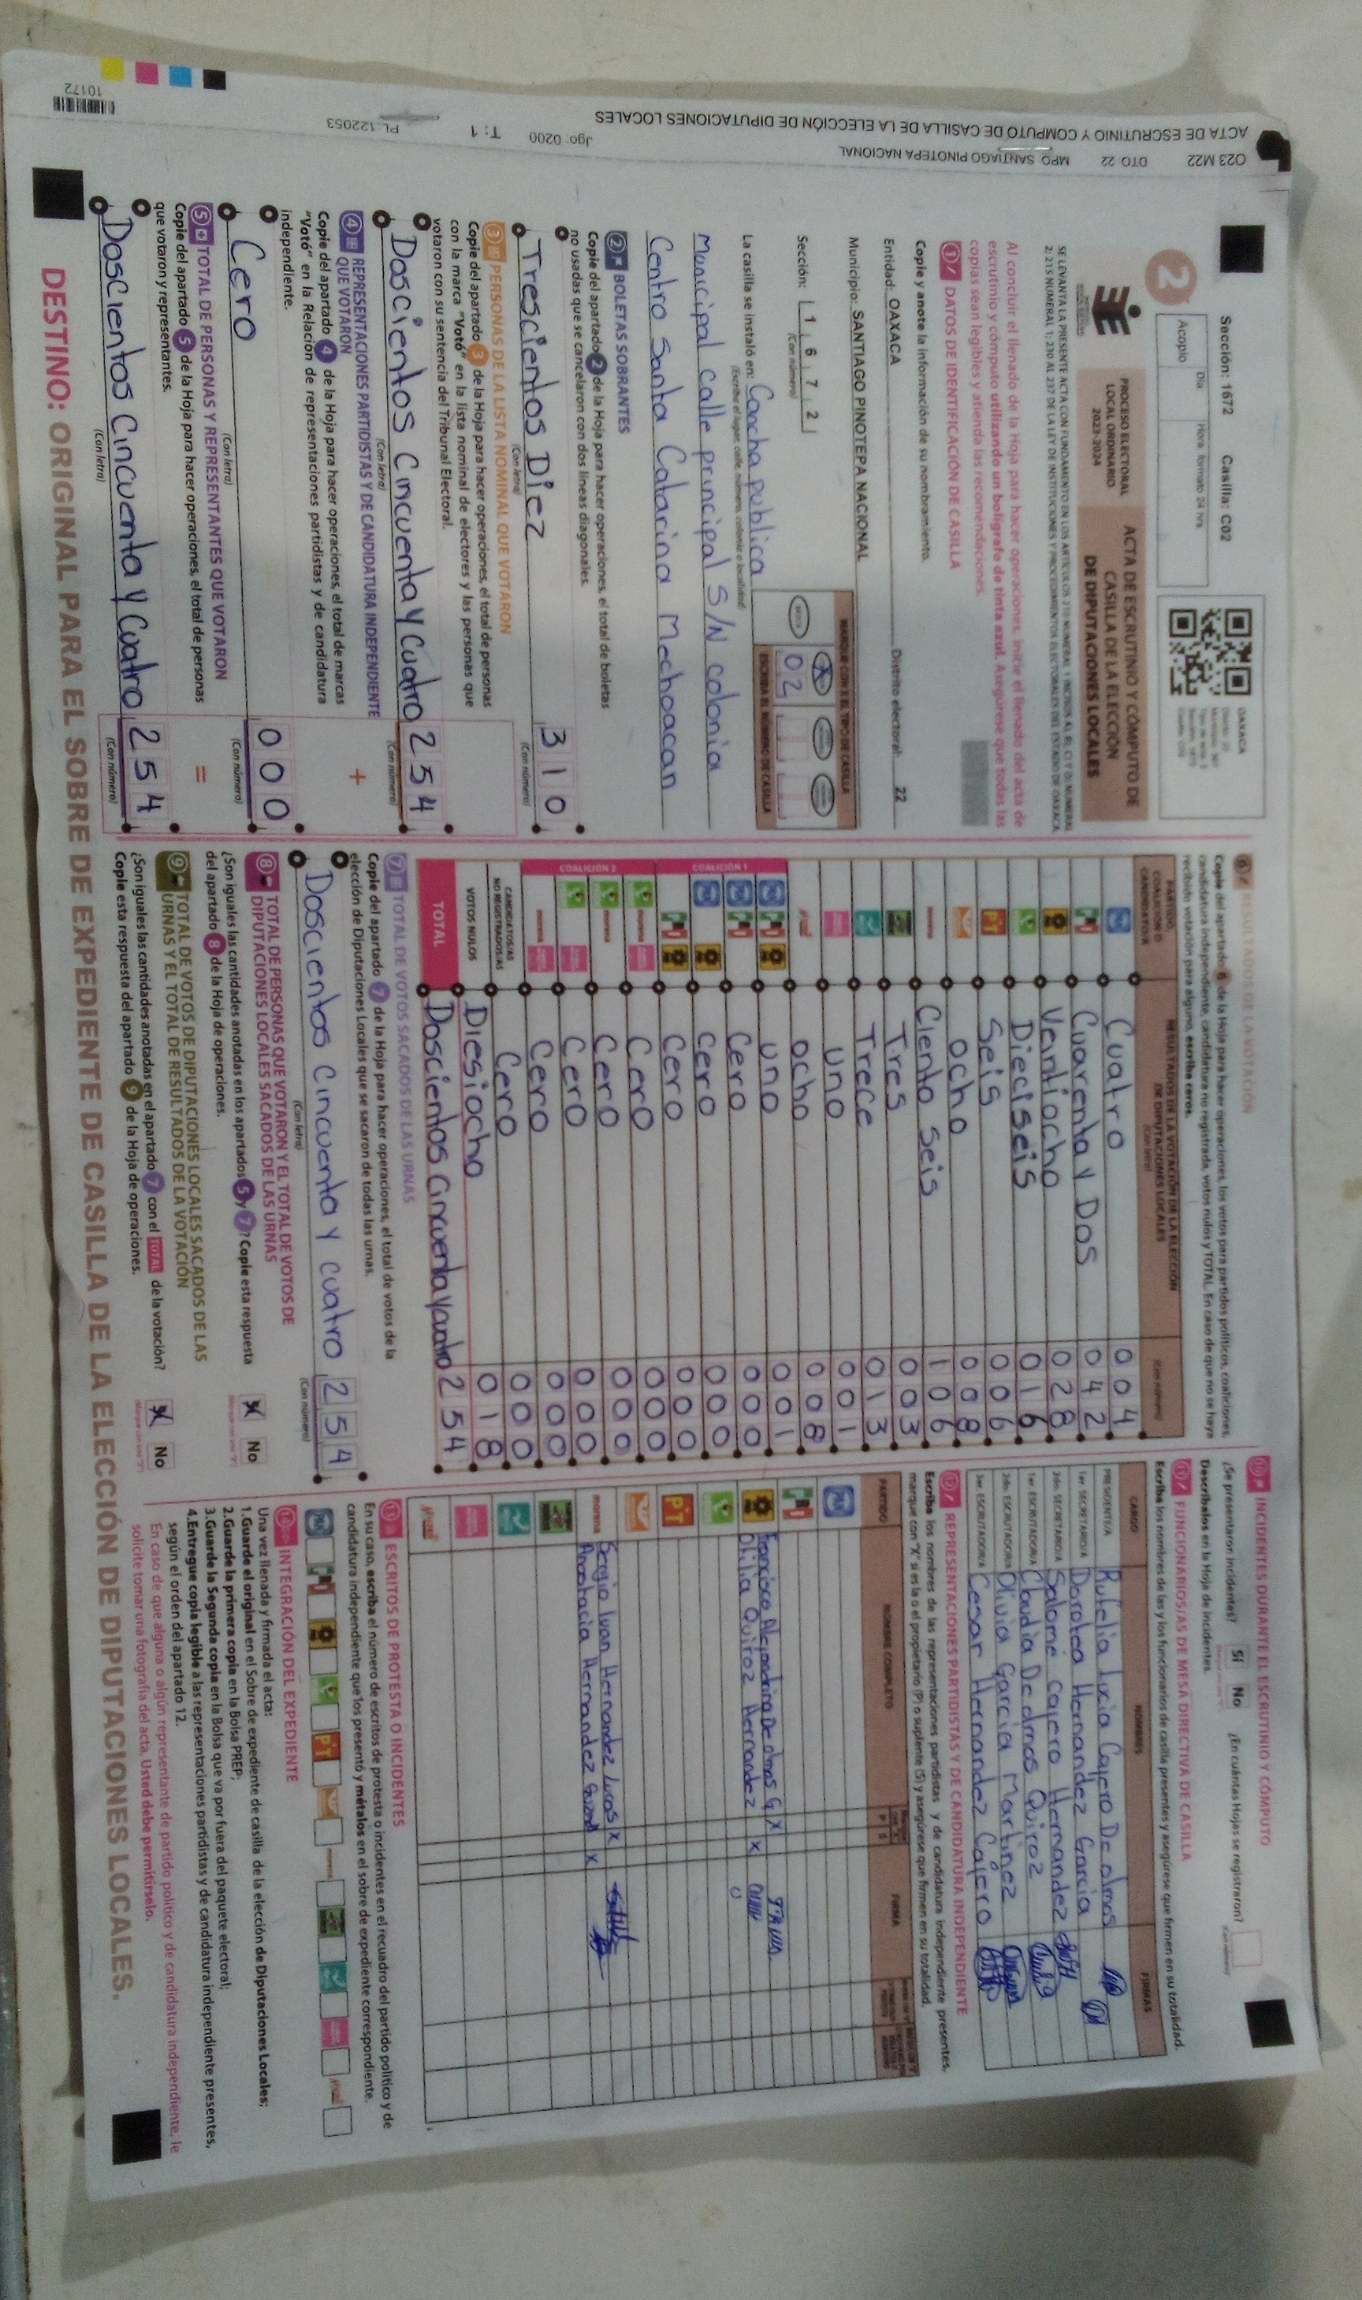 Sección: 1672 Casilla: C02
Día Hora, formato 24 hrs
Acopio
2
PROCESO ELECTORAL
LOCAL ORDINARIO
2023-2024
ACTA DE ESCRUTINIO Y CÓMPUTO DE
CASILLA DE LA ELECCIÓN
DE DIPUTACIONES LOCALES
OAXACA
SE LEVANTA LA PRESENTE ACTA CON FUNDAMENTO EN LOS ARTÍCULOS
Al concluir el llenado de la Hoja para hacer operaciones, inicie el llenado del acta de
escrutinio y cómputo utilizando un bolígrafo de tinta azul. Asegúrese que todas las
copias sean legibles y atienda las recomendaciones.
1 DATOS DE IDENTIFICACIÓN DE CASILLA
Copie y anote la información de su nombramiento.
Entidad: OAXACA Distrito electoral: 22
Municipio: SANTIAGO PINOTEPA NACIONAL
MARQUE CON X EL TIPO DE CASILLA
Sección: 1 6 7 2
(Con número)
02
ESCRIBA EL NÚMERO DE CASILLA
La casilla se instaló en: Cancha publica
(Escriba el lugar, calle, número, colonia o localidad)
Municipal calle principal S/N colonia
Centro Santa Catarina Mechoacan
2 BOLETAS SOBRANTES
Copie del apartado 2 de la Hoja para hacer operaciones, el total de boletas
no usadas que se cancelaron con dos líneas diagonales.
Trescientos Diez 310
(Con letra) (Con número)
3 PERSONAS DE LA LISTA NOMINAL QUE VOTARON
Copie del apartado 3 de la Hoja para hacer operaciones, el total de personas
con la marca "Votó" en la lista nominal de electores y las personas que
votaron con su sentencia del Tribunal Electoral.
Doscientos Cincuenta y Cuatro 254
(Con letra) (Con número)
4 REPRESENTACIONES PARTIDISTAS Y DE CANDIDATURA INDEPENDIENTE
QUE VOTARON +
Copie del apartado 4 de la Hoja para hacer operaciones, el total de marcas
"Votó" en la Relación de representaciones partidistas y de candidatura
independiente.
Cero 000
(Con letra) (Con número)
5 TOTAL DE PERSONAS Y REPRESENTANTES QUE VOTARON =
Copie del apartado 5 de la Hoja para hacer operaciones, el total de personas
que votaron y representantes.
Doscientos Cincuenta y Cuatro 254
(Con letra) (Con número)
6 RESULTADOS DE LA VOTACIÓN
Copie del apartado 6 de la Hoja para hacer operaciones, los votos para partidos políticos, coaliciones,
candidatura independiente, candidatura no registrada, votos nulos y TOTAL. En caso de que no se haya
recibido votación para alguno, escriba ceros.
PARTIDO, COALICIÓN O CANDIDATO/A
RESULTADOS DE LA VOTACIÓN DE LA ELECCIÓN
DE DIPUTACIONES LOCALES
(Con letra) (Con número)
Cuatro 004
Cuarenta y Dos 042
Veintiocho 028
Dieciseis 016
PT Seis 006
ocho 008
morena Ciento Seis 106
Tres 003
Trece 013
uno 001
ocho 008
COALICIÓN 1
uno 001
Cero 000
Cero 000
Cero 000
COALICIÓN 2
morena Cero 000
morena Cero 000
Cero 000
morena Cero 000
CANDIDATOS/AS NO REGISTRADOS/AS Cero 000
VOTOS NULOS Diesiocho 018
TOTAL Doscientos Cincuenta y cuatro 254
7 TOTAL DE VOTOS SACADOS DE LAS URNAS
Copie del apartado 7 de la Hoja para hacer operaciones, el total de votos de la
elección de Diputaciones Locales que se sacaron de todas las urnas.
Doscientos Cincuenta y cuatro 254
(Con letra) (Con número)
8 TOTAL DE PERSONAS QUE VOTARON Y EL TOTAL DE VOTOS DE
DIPUTACIONES LOCALES SACADOS DE LAS URNAS
¿Son iguales las cantidades anotadas en los apartados 5 y 7? Copie esta respuesta
del apartado 8 de la Hoja de operaciones. No
9 TOTAL DE VOTOS DE DIPUTACIONES LOCALES SACADOS DE LAS
URNAS Y EL TOTAL DE RESULTADOS DE LA VOTACIÓN
¿Son iguales las cantidades anotadas en el apartado 7 con el TOTAL de la votación?
Copie esta respuesta del apartado 9 de la Hoja de operaciones. No
10 INCIDENTES DURANTE EL ESCRUTINIO Y CÓMPUTO
¿Se presentaron incidentes? Sí No ¿En cuántas Hojas se registraron?
Descríbalos en la Hoja de incidentes.
11 FUNCIONARIOS/AS DE MESA DIRECTIVA DE CASILLA
Escriba los nombres de las y los funcionarios de casilla presentes y asegúrese que firmen en su totalidad.
CARGO NOMBRES FIRMAS
PRESIDENTE/A Rufelia Lucia Cajero De olmos
1er. SECRETARIO/A Doroteo Hernandez Garcia
2do. SECRETARIO/A Salome Cajero Hernandez
1er. ESCRUTADOR/A Claudia De olmos Quiroz
2do. ESCRUTADOR/A Olivia Garcia Martinez
3er. ESCRUTADOR/A Cesar Hernandez Cajero
12 REPRESENTACIONES PARTIDISTAS Y DE CANDIDATURA INDEPENDIENTE
Escriba los nombres de las representaciones partidistas y de candidatura independiente presentes,
marque con "X" si es la o el propietario (P) o suplente (S) y asegúrese que firmen en su totalidad.
PARTIDO NOMBRE COMPLETO P S FIRMA
Francisco Alejandra De olmos G x
Olilia Quiroz Hernandez x
PT
morena Sergio Ivan Hernandez Lucas x
Anastacia Hernandez x
13 ESCRITOS DE PROTESTA O INCIDENTES
En su caso, escriba el número de escritos de protesta o incidentes en el recuadro del partido político y de
candidatura independiente que los presentó y métalos en el sobre de expediente correspondiente.
PT morena
14 INTEGRACIÓN DEL EXPEDIENTE
Una vez llenada y firmada el acta:
1.Guarde el original en el Sobre de expediente de casilla de la elección de Diputaciones Locales;
2.Guarde la primera copia en la Bolsa PREP;
3.Guarde la Segunda copia en la Bolsa que va por fuera del paquete electoral;
4.Entregue copia legible a las representaciones partidistas y de candidatura independiente presentes,
según el orden del apartado 12.
En caso de que alguna o algún representante de partido político y de candidatura independiente, le
solicite tomar una fotografía del acta, Usted debe permitírselo.
DESTINO: ORIGINAL PARA EL SOBRE DE EXPEDIENTE DE CASILLA DE LA ELECCIÓN DE DIPUTACIONES LOCALES.
O23 M22 DTO 22 MPO SANTIAGO PINOTEPA NACIONAL
ACTA DE ESCRUTINIO Y COMPUTO DE CASILLA DE LA ELECCIÓN DE DIPUTACIONES LOCALES
Jgo: 0200 T: 1 PL: 122053
10172